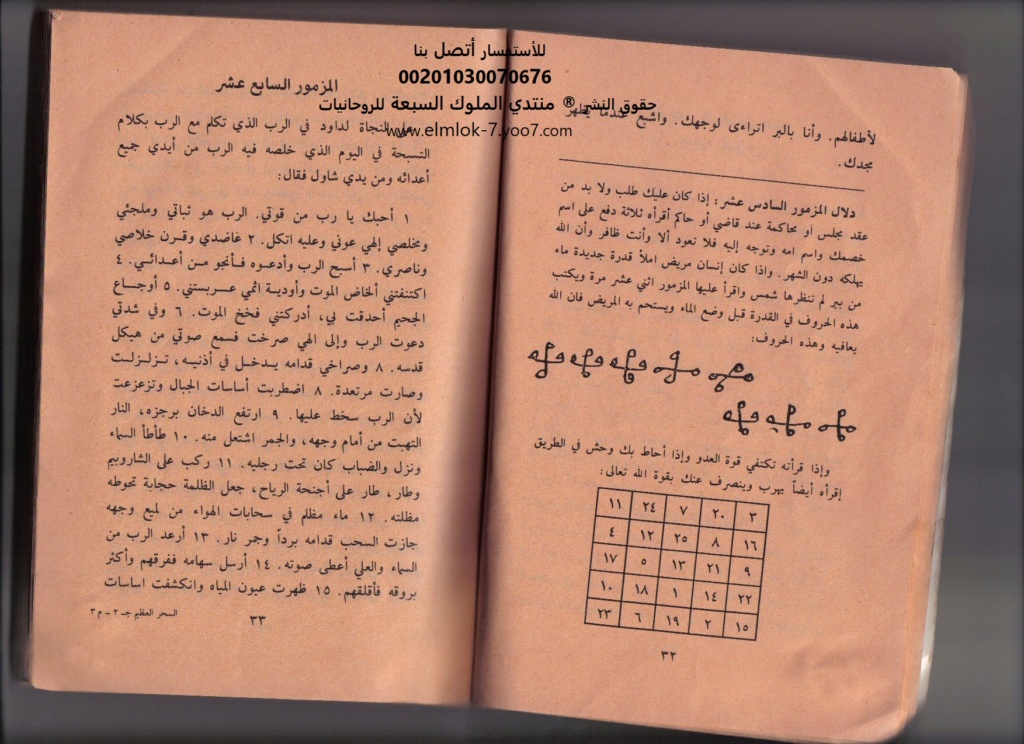 للأستفسار أتصل بنا
00201030070676
حقوق النشر ® منتدي الملوك السبعة للروحانيات
www.elmlok-7.yoo7.com
لأطفالهم. وأنا بالبر اتراءى لوجهك. واشبع عندما يظهر
مجدك.
دلال المزمور السادس عشر: إذا كان عليك طلب ولا بد من
عقد مجلس أو محاكمة عند قاضي أو حاكم أقرأه ثلاثة دفع على اسم
خصمك واسم امه وتوجه إليه فلا تعود ألا وأنت ظافر وأن الله
يهلكه دون الشهر. واذا كان إنسان مريض املأ قدرة جديدة ماء
من بير لم تنظرها شمس واقرأ عليها المزمور اثني عشر مرة ويكتب
هذه الحروف في القدرة قبل وضع الماء ويستحم به المريض فان الله
يعافيه وهذه الحروف:
وإذا قرأته تكتفي قوة العدو وإذا أحاط بك وحش في الطريق
إقرأه أيضاً يهرب وينصرف عنك بقوة الله تعالى:
٣ ٢٠ ٧ ٢٤ ١١
١٦ ٨ ٢٥ ١٢ ٤
٩ ٢١ ١٣ ٥ ١٧
٢٢ ١٤ ١ ١٨ ١٠
١٥ ٢ ١٩ ٦ ٢٣
٣٢
المزمور السابع عشر
النجاة لداود في الرب الذي تكلم مع الرب بكلام
التسبحة في اليوم الذي خلصه فيه الرب من أيدي جميع
أعدائه ومن يدي شاول فقال:
١ أحبك يا رب من قوتي. الرب هو ثباتي وملجئي
ومخلصي إلهي عوني وعليه اتكل. ٢ عاضدي وقرن خلاصي
وناصري. ٣ أسبح الرب وأدعوه فأنجو من أعدائي. ٤
اكتنفتني ألخاض الموت وأودية اثمي عربستني. ٥ أوجاع
الجحيم أحدقت بي، أدركتني فخخ الموت. ٦ وفي شدتي
دعوت الرب وإلى الهي صرخت فسمع صوتي من هيكل
قدسه. ٨ وصراخي قدامه يدخل في أذنيه، تزلزلت
وصارت مرتعدة. ٨ اضطربت أساسات الجبال وتزعزعت
لأن الرب سخط عليها. ٩ ارتفع الدخان برجزه، النار
التهبت من أمام وجهه، والجمر اشتعل منه. ١٠ طأطأ السماء
ونزل والضباب كان تحت رجليه. ١١ ركب على الشاروبيم
وطار، طار على أجنحة الرياح، جعل الظلمة حجابة تحوطه
مظلته. ١٢ ماء مظلم في سحابات الهواء من لميع وجهه
جازت السحب قدامه برداً وجمر نار. ١٣ أرعد الرب من
السماء والعلي أعطى صوته. ١٤ أرسل سهامه ففرقهم وأكثر
بروقه فأقلقهم. ١٥ ظهرت عيون المياه وانكشفت اساسات
السحر العظيم جـ ٢ - م ٣
٣٣